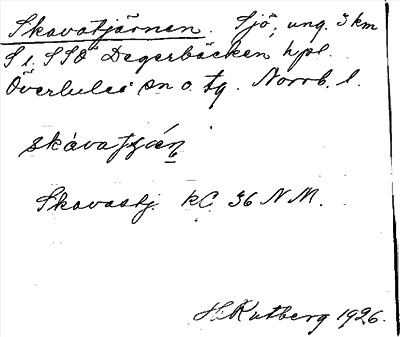 Skavatjärnen. Sjö, ung. 3 km
S i. SSO Degerbäcken hpl.
Överluleå sn o. tg. Norrb. l.
Skavastj. kC 36 NM.
H. Rutberg 1926.